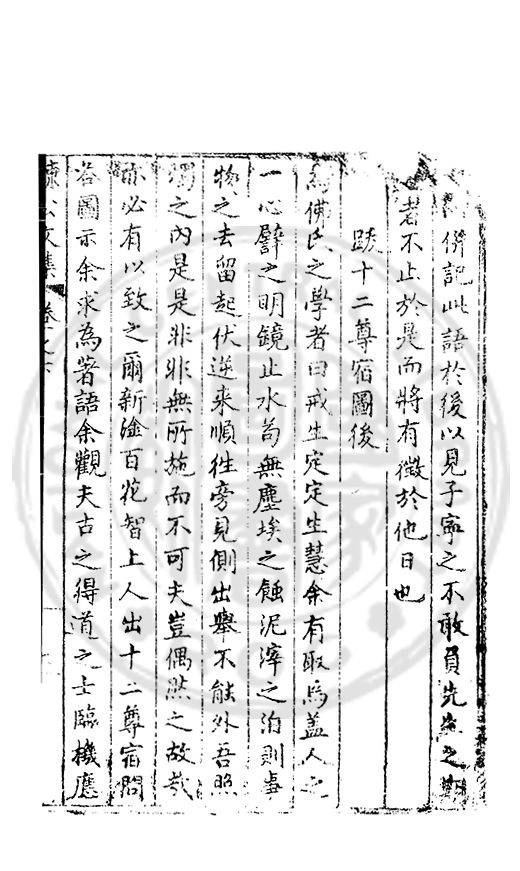 併記此語於後以見子寧之不敢負先生之期
者不止於是而將有徵於他日也
跋十二尊宿圖後
為佛氏之學者曰戒生定定生慧余有取焉蓋人之
一心譬之明鏡止水苟無塵埃之蝕泥滓之汩則事
物之去留起伏逆来順徃旁見側出舉不能外吾照
燭之內是是非非無所施而不可夫豈偶然之故哉
亦必有以致之爾新淦百花智上人出十二尊宿問
答圖示余求為著語余觀夫古之得道之士臨機應
文集 卷之下